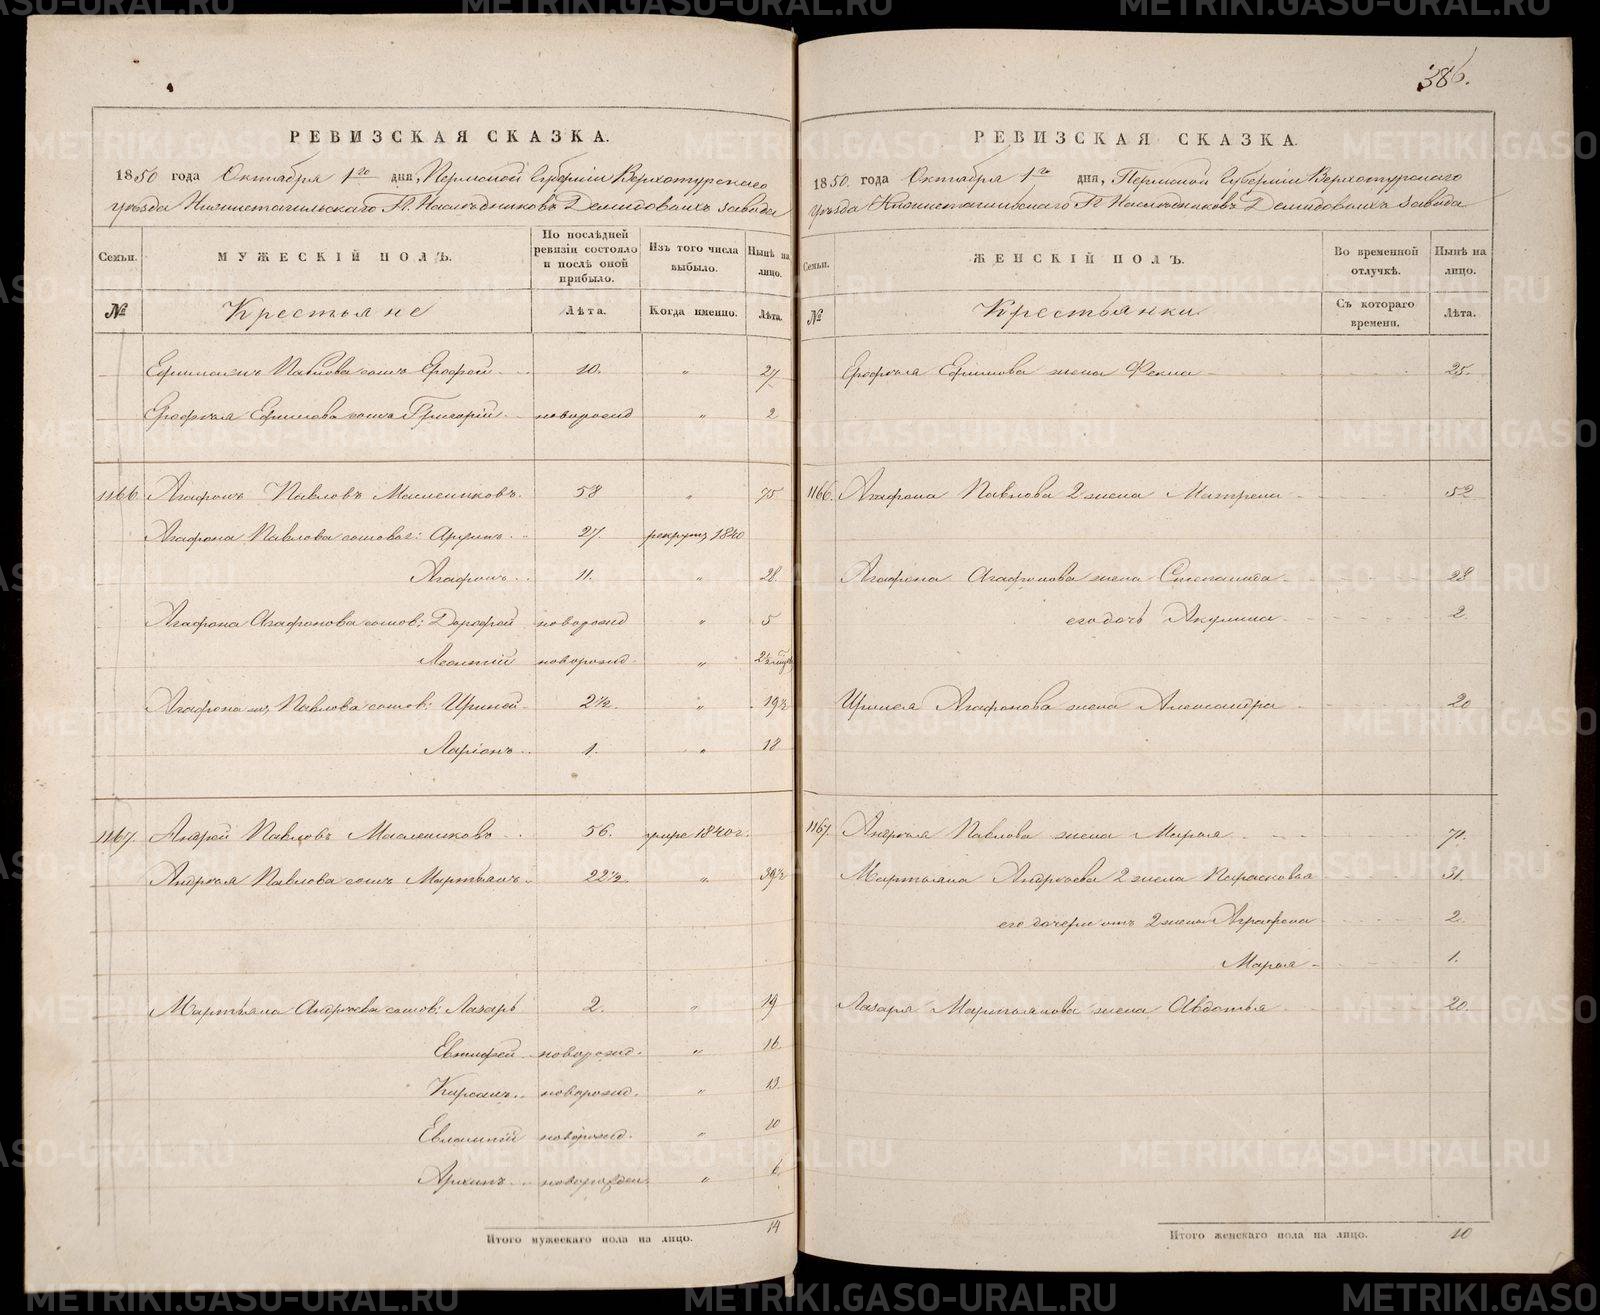 386.
РЕВИЗСКАЯ СКАЗКА.
1850 года Октября 1го дня, Пермской Губерніи Верхотурскаго
уѣзда Нижнетагильскаго Г. Наслѣдниковъ Демидовыхъ завода
Семьи.
МУЖЕСКІЙ ПОЛЪ.
По послѣдней ревизіи состояло и послѣ оной прибыло.
Изъ того числа выбыло.
Нынѣ на лицо.
№ Крестьяне Лѣта. Когда именно. Лѣта.
Павлова сынъ Ерофей 10. „ 27
Ерофея Ефимова сынъ Григорій новорожд „ 2
1166. Агафонъ Павловъ Маслениковъ. 58 „ 75
Агафона Павлова сыновья: 27. рекрутъ 1840
Агафонъ 11. „ 28.
Агафона Агафонова сынов: Дорофей новорожд „ 5
Леонтій новорожд. „
Агафона Павлова сынов: Ириней 2½ „ 19½
Ларіонъ 1. „ 18
1167. Андрей Павловъ Маслениковъ 56. умре 1840 г.
Андрея Павлова сынъ Мартьянъ 22½ „ 39½
Мартьяна Андреева сынов: Лазарь 2. „ 19
Евтифей новорожд. „ 16.
новорожд. „ 13.
Евлампій новорожд. „ 10
Архипъ новорожден. „ 6.
Итого мужескаго пола на лицо. 14
РЕВИЗСКАЯ СКАЗКА.
1850. года Октября 1го дня, Пермской Губерніи Верхотурскаго
уѣзда Нижнетагильскаго Г. Наслѣдниковъ Демидовыхъ завода
Семьи.
ЖЕНСКІЙ ПОЛЪ.
Во временной отлучкѣ.
Нынѣ на лицо.
№ Крестьянки Съ котораго времени. Лѣта.
Ерофея Ефимова жена Фекла 25.
1166. Агафона Павлова 2 жена Матрена 52
Агафона Агафонова жена Степанида 28
его дочь Акулина 2.
Иринея Агафонова жена Александра 20
1167. Андрея Павлова жена Марья 71.
Мартьяна Андреева 2 жена Парасковья 31.
его дочери отъ 2 жены Аграфена 2.
Марья 1.
Лазаря Мартьянова жена Авдотья 20.
Итого женскаго пола на лицо. 10
METRIKI.GASO-URAL.RU